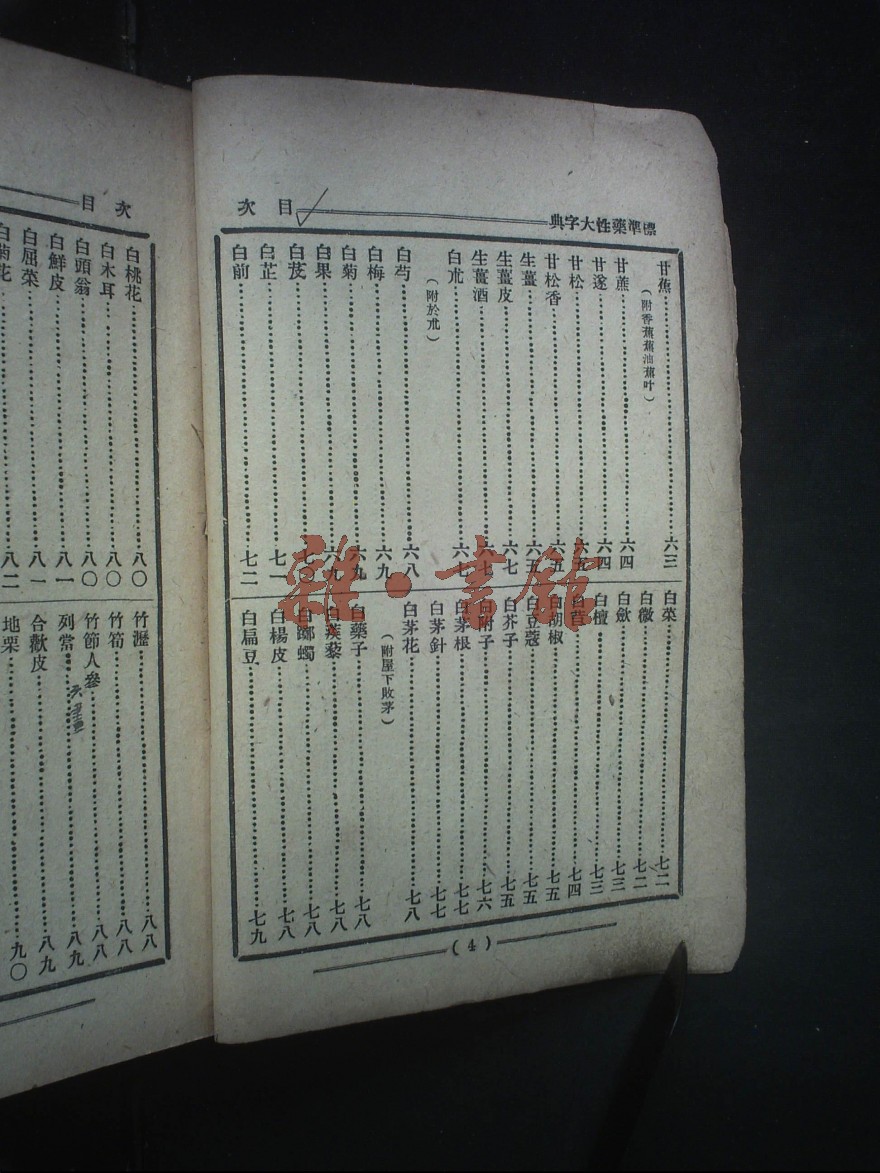 標準藥性大字典
目次
甘蕉……六三
（附香蕉蕉油蕉叶）
甘蔗……六四
甘遂……六四
甘松……六五
甘松香……六五
生薑……六五
生薑皮……六七
生薑酒……六七
白朮……六七
（附於朮）
白芍……六八
白梅……六九
白菊……六九
白果……六九
白芨……七
白芷……七一
白前……七二
白菜……七二
白薇……七二
白歛……七三
白檀……七三
白苣……七四
白胡椒……七五
白豆蔻……七五
白芥子……七五
白附子……七六
白茅根……七七
白茅針……七七
白茅花……七八
（附屋下敗茅）
白藥子……七八
白蒺藜……七八
白躑蠋……七八
白楊皮……七八
白扁豆……七九
（4）
目次
白桃花……八〇
白木耳……八〇
白頭翁……八〇
白鮮皮……八一
白屈菜……八一
白菊花……八二
竹瀝……八八
竹筍……八八
竹節人參……八八
列當……八九
合歡皮……八九
地栗……九〇
雜·書館